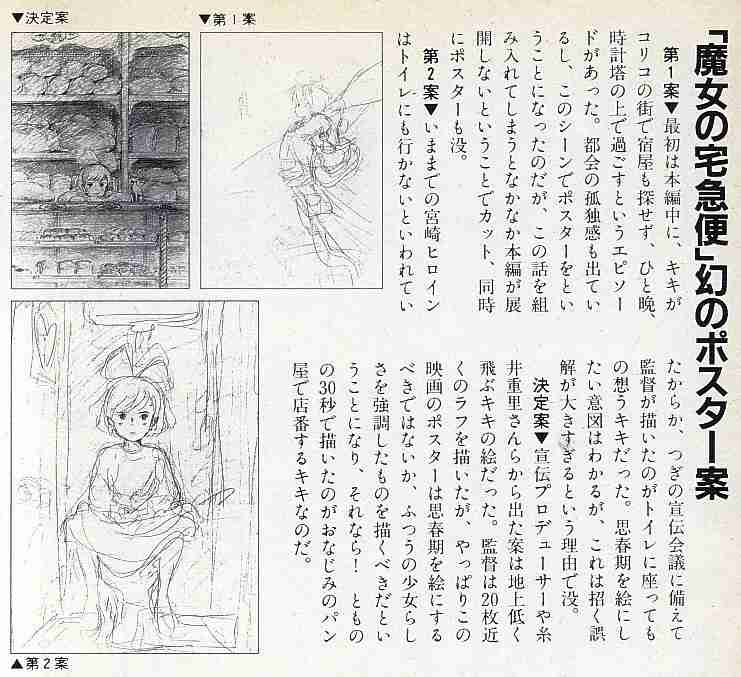 「魔女の宅急便」幻のポスター案
第1案▼最初は本編中に、キキが
コリコの街で宿屋も探せず、ひと晩、
時計塔の上で過ごすというエピソー
ドがあった。都会の孤独感も出てい
るし、このシーンでポスターをとい
うことになったのだが、この話を組
み入れてしまうとなかなか本編が展
開しないということでカット、同時
にポスターも没。
第2案▼いままでの宮崎ヒロイン
はトイレにも行かないといわれてい
たからか、つぎの宣伝会議に備えて
監督が描いたのがトイレに座っても
の想うキキだった。思春期を絵にし
たい意図はわかるが、これは招く誤
解が大きすぎるという理由で没。
決定案▼宣伝プロデューサーや糸
井重里さんらから出た案は地上低く
飛ぶキキの絵だった。監督は20枚近
くのラフを描いたが、やっぱりこの
映画のポスターは思春期を絵にする
べきではないか、ふつうの少女らし
さを強調したものを描くべきだとい
うことになり、それなら!ともの
の30秒で描いたのがおなじみのパン
屋で店番するキキなのだ。
▼第1案
▼決定案
▲第2案